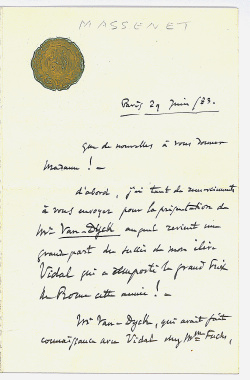 MASSENET
Paris 29 Juin/83.
Que de nouvelles à vous donner
Madame ! —
d'abord, j'ai tant de remerciements
à vous envoyer pour la présentation de
Mr Van-Dyck auquel revient une
grand part du succès de mon élève
Vidal qui a remporté le grand Prix
de Rome cette année ! —
Mr Van-Dyck, qui avait fait
connaissance avec Vidal chez Mme Fuchs,